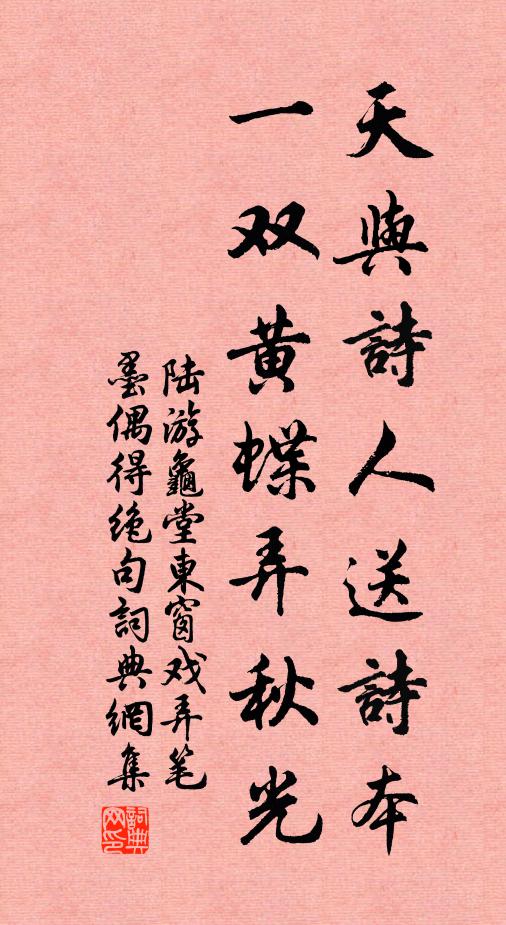 天與詩人送詩本
一双黄蝶弄秋光
陆游龜堂東窗戏弄笔
墨偶得绝句詞典網集
詞典
网印